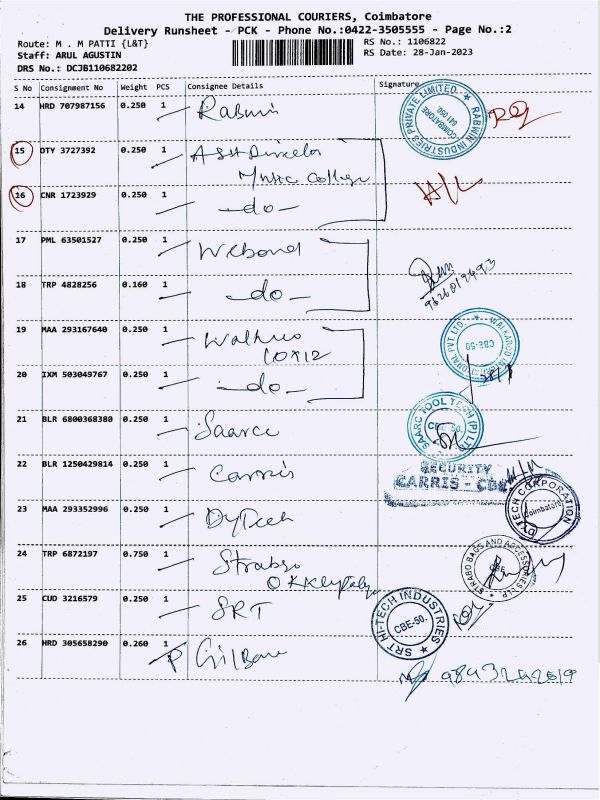 THE PROFESSIONAL COURIERS, Coimbatore
Delivery Runsheet - PCK - Phone No.:0422-3505555 - Page No.:2
Route: M . M PATTI {L&T}
RS No.: 1106822
Staff: ARUL AGUSTIN
RS Date: 28-Jan-2023
DRS No.: DCJB110682202
S No Consignment No Weight PCS Consignee Details Signature
14 HRD 707987156 0.250 1 Rabwin
RABWIN INDUSTRIES PRIVATE LIMITED COIMBATORE 641 050
15 DTY 3727392 0.250 1 ASH Director
College
16 CNR 1723929 0.250 1 -do-
17 PML 63501527 0.250 1 Webond
18 TRP 4828256 0.160 1 -do-
19 MAA 293167640 0.250 1
PVT. LTD. CBE-50
20 IXM 503049767 0.250 1 -do-
21 BLR 6800368380 0.250 1 Saarc
SAARC TOOL TECH (P) LTD CBE-50.
22 BLR 1250429814 0.250 1 Carris
SECURITY
CARRIS - CBE
23 MAA 293352996 0.250 1 DyTech
DYTECH CORPORATION Coimbatore
24 TRP 6872197 0.750 1 Strabo
STRABO BAGS AND ACCESSORIES LLP. CBE
25 CUD 3216579 0.250 1 SRT
SRT HI-TECH INDUSTRIES CBE-50.
26 HRD 305658290 0.260 1 P